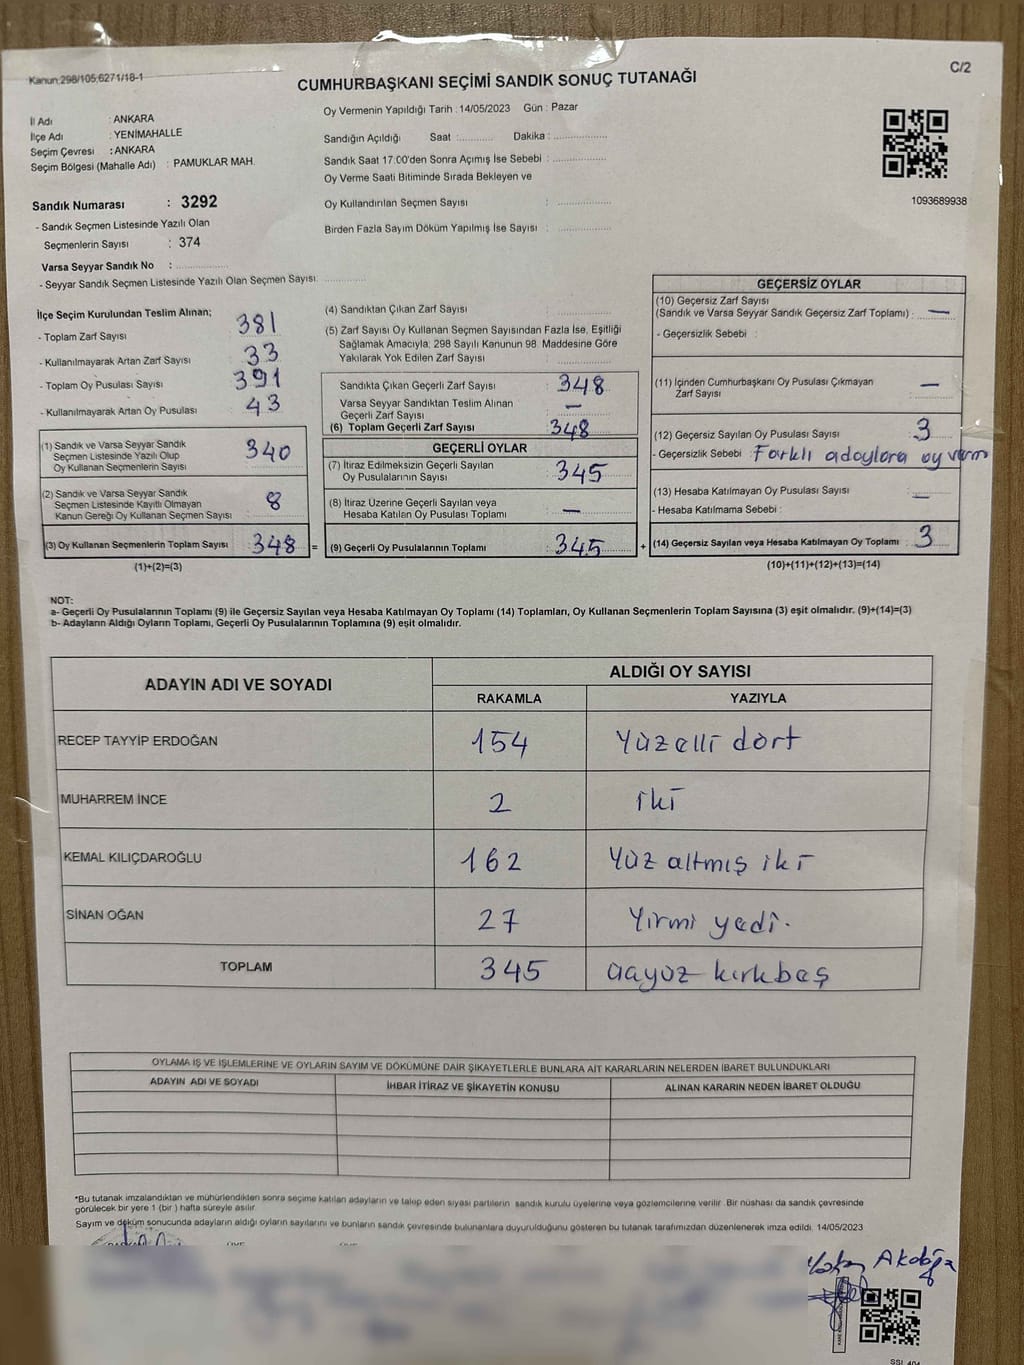 Kanun;298/105;6271/18-1
CUMHURBAŞKANI SEÇİMİ SANDIK SONUÇ TUTANAĞI
C/2
İl Adı : ANKARA
İlçe Adı : YENİMAHALLE
Seçim Çevresi : ANKARA
Seçim Bölgesi (Mahalle Adı) : PAMUKLAR MAH.
Oy Vermenin Yapıldığı Tarih : 14/05/2023 Gün : Pazar
Sandığın Açıldığı Saat :........... Dakika : ................
Sandık Saat 17:00'den Sonra Açımış İse Sebebi : ................
Oy Verme Saati Bitiminde Sırada Bekleyen ve
Oy Kullandırılan Seçmen Sayısı : ................
Birden Fazla Sayım Döküm Yapılmış İse Sayısı : ................
1093689938
Sandık Numarası : 3292
- Sandık Seçmen Listesinde Yazılı Olan
Seçmenlerin Sayısı : 374
Varsa Seyyar Sandık No : ................
- Seyyar Sandık Seçmen Listesinde Yazılı Olan Seçmen Sayısı: ................
İlçe Seçim Kurulundan Teslim Alınan;
- Toplam Zarf Sayısı 381
- Kullanılmayarak Artan Zarf Sayısı 33
- Toplam Oy Pusulası Sayısı 391
- Kullanılmayarak Artan Oy Pusulası 43
(1) Sandık ve Varsa Seyyar Sandık
Seçmen Listesinde Yazılı Olup
Oy Kullanan Seçmenlerin Sayısı 340
(2) Sandık ve Varsa Seyyar Sandık
Seçmen Listesinde Kayıtlı Olmayan
Kanun Gereği Oy Kullanan Seçmen Sayısı : 8
(3) Oy Kullanan Seçmenlerin Toplam Sayısı : 348 =
(1)+(2)=(3)
(4) Sandıktan Çıkan Zarf Sayısı : ................
(5) Zarf Sayısı Oy Kullanan Seçmen Sayısından Fazla İse, Eşitliği
Sağlamak Amacıyla; 298 Sayılı Kanunun 98. Maddesine Göre
Yakılarak Yok Edilen Zarf Sayısı : ................
Sandıkta Çıkan Geçerli Zarf Sayısı : 348
Varsa Seyyar Sandıktan Teslim Alınan
Geçerli Zarf Sayısı : —
(6) Toplam Geçerli Zarf Sayısı : 348
GEÇERLİ OYLAR
(7) İtiraz Edilmeksizin Geçerli Sayılan
Oy Pusulalarının Sayısı : 345
(8) İtiraz Üzerine Geçerli Sayılan veya
Hesaba Katılan Oy Pusulası Toplamı : —
(9) Geçerli Oy Pusulalarının Toplamı : 345 +
GEÇERSİZ OYLAR
(10) Geçersiz Zarf Sayısı
(Sandık ve Varsa Seyyar Sandık Geçersiz Zarf Toplamı) : —
- Geçersizlik Sebebi :
(11) İçinden Cumhurbaşkanı Oy Pusulası Çıkmayan
Zarf Sayısı : —
(12) Geçersiz Sayılan Oy Pusulası Sayısı : 3
- Geçersizlik Sebebi : Farklı adaylara oy
(13) Hesaba Katılmayan Oy Pusulası Sayısı : —
- Hesaba Katılmama Sebebi :
(14) Geçersiz Sayılan veya Hesaba Katılmayan Oy Toplamı : 3
(10)+(11)+(12)+(13)=(14)
NOT:
a- Geçerli Oy Pusulalarının Toplamı (9) ile Geçersiz Sayılan veya Hesaba Katılmayan Oy Toplamı (14) Toplamları, Oy Kullanan Seçmenlerin Toplam Sayısına (3) eşit olmalıdır. (9)+(14)=(3)
b- Adayların Aldığı Oyların Toplamı, Geçerli Oy Pusulalarının Toplamına (9) eşit olmalıdır.
ADAYIN ADI VE SOYADI ALDIĞI OY SAYISI
RAKAMLA YAZIYLA
RECEP TAYYİP ERDOĞAN 154 Yüzelli dört
MUHARREM İNCE 2 iki
KEMAL KILIÇDAROĞLU 162 Yüz altmış iki
SİNAN OĞAN 27 Yirmi yedi.
TOPLAM 345 kırkbeş
OYLAMA İŞ VE İŞLEMLERİNE VE OYLARIN SAYIM VE DÖKÜMÜNE DAİR ŞİKAYETLERLE BUNLARA AİT KARARLARIN NELERDEN İBARET BULUNDUKLARI
ADAYIN ADI VE SOYADI İHBAR İTİRAZ VE ŞİKAYETİN KONUSU ALINAN KARARIN NEDEN İBARET OLDUĞU
*Bu tutanak imzalandıktan ve mühürlendikten sonra seçime katılan adayların ve talep eden siyasi partilerin sandık kurulu üyelerine veya gözlemcilerine verilir. Bir nüshası da sandık çevresinde
görülecek bir yere 1 (bir ) hafta süreyle asılır.
Sayım ve döküm sonucunda adayların aldığı oyların sayılarını ve bunların sandık çevresinde bulunanlara duyurulduğunu gösteren bu tutanak tarafımızdan düzenlenerek imza edildi. 14/05/2023